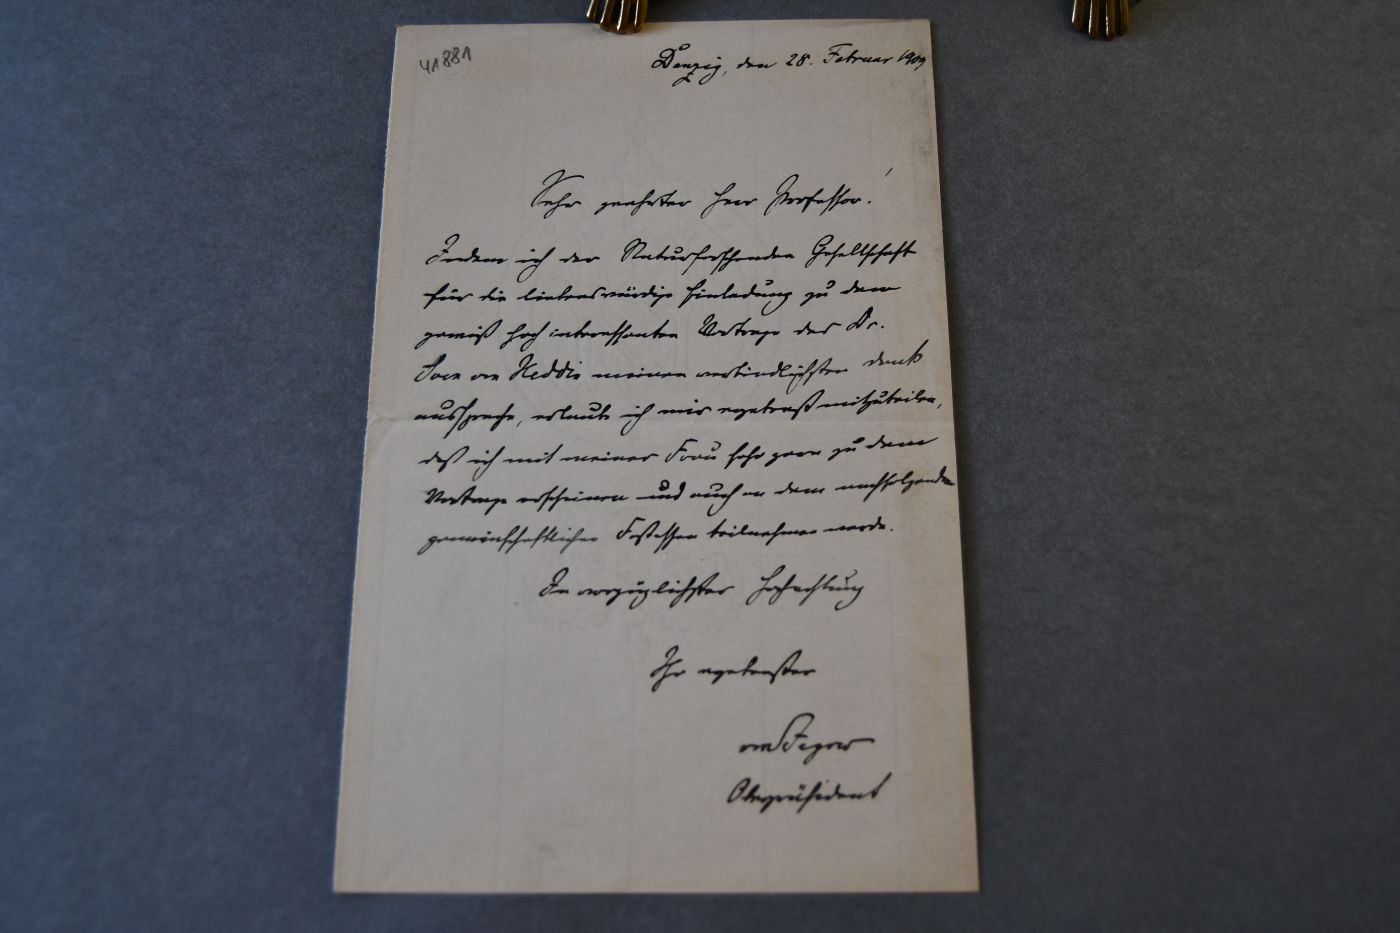 41881
Danzig, den 28. Februar 1909
Sehr geehrter Herr Professor!
Indem ich der Naturforschenden Gesellschaft
für die liebenswürdige Einladung zu dem
gewiß hoch interessanten Vortrage des Dr.
Sven von Heddin meinen verbindlichsten Dank
ausspreche, erlaube ich mir ergebenst mitzuteilen,
daß ich mit meiner Frau sehr gern zu dem
Vortrage erscheinen und auch an dem nachfolgenden
gemeinschaftlichen Festessen teilnehmen werde.
In vorzüglichster Hochachtung
Ihr ergebenster
von Jagow
Oberpräsident